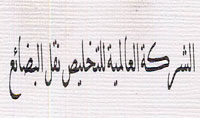 الشركة العالمية للتخليص نقل البضائع